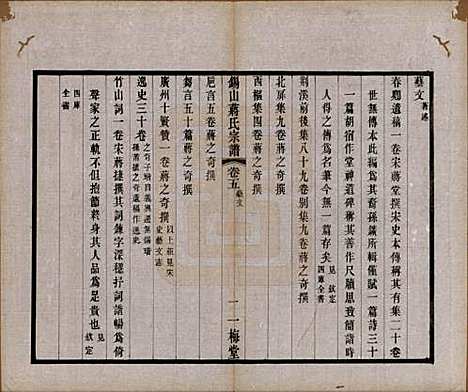 藝文 著述
春卿遺稿一卷宋蔣堂撰宋史本傳稱其有集二十卷
世無傳本此編為其裔孫鐄所輯僅賦一篇詩三十
一篇胡宿作堂神道碑稱其善作尺牘思致簡詣時
人得之傳為名筆今無一篇存矣 見欽定四庫全書
荆溪前後集八十九卷别集九卷蔣之奇撰
北扉集九卷蔣之奇撰
西樞集四卷蔣之奇撰
錫山蔣氏宗譜 卷五 藝文 二 一梅堂
卮言五卷蔣之奇撰
芻言五十篇蔣之奇撰
廣州十賢贊一卷蔣之奇撰 以上並見宋史藝文志
逸史三十卷
竹山詞一卷蔣捷撰其詞鍊字深穩抒詞諧暢為倚
聲家之正而抱節不仕其人品為足貴也 見欽定
四庫全書